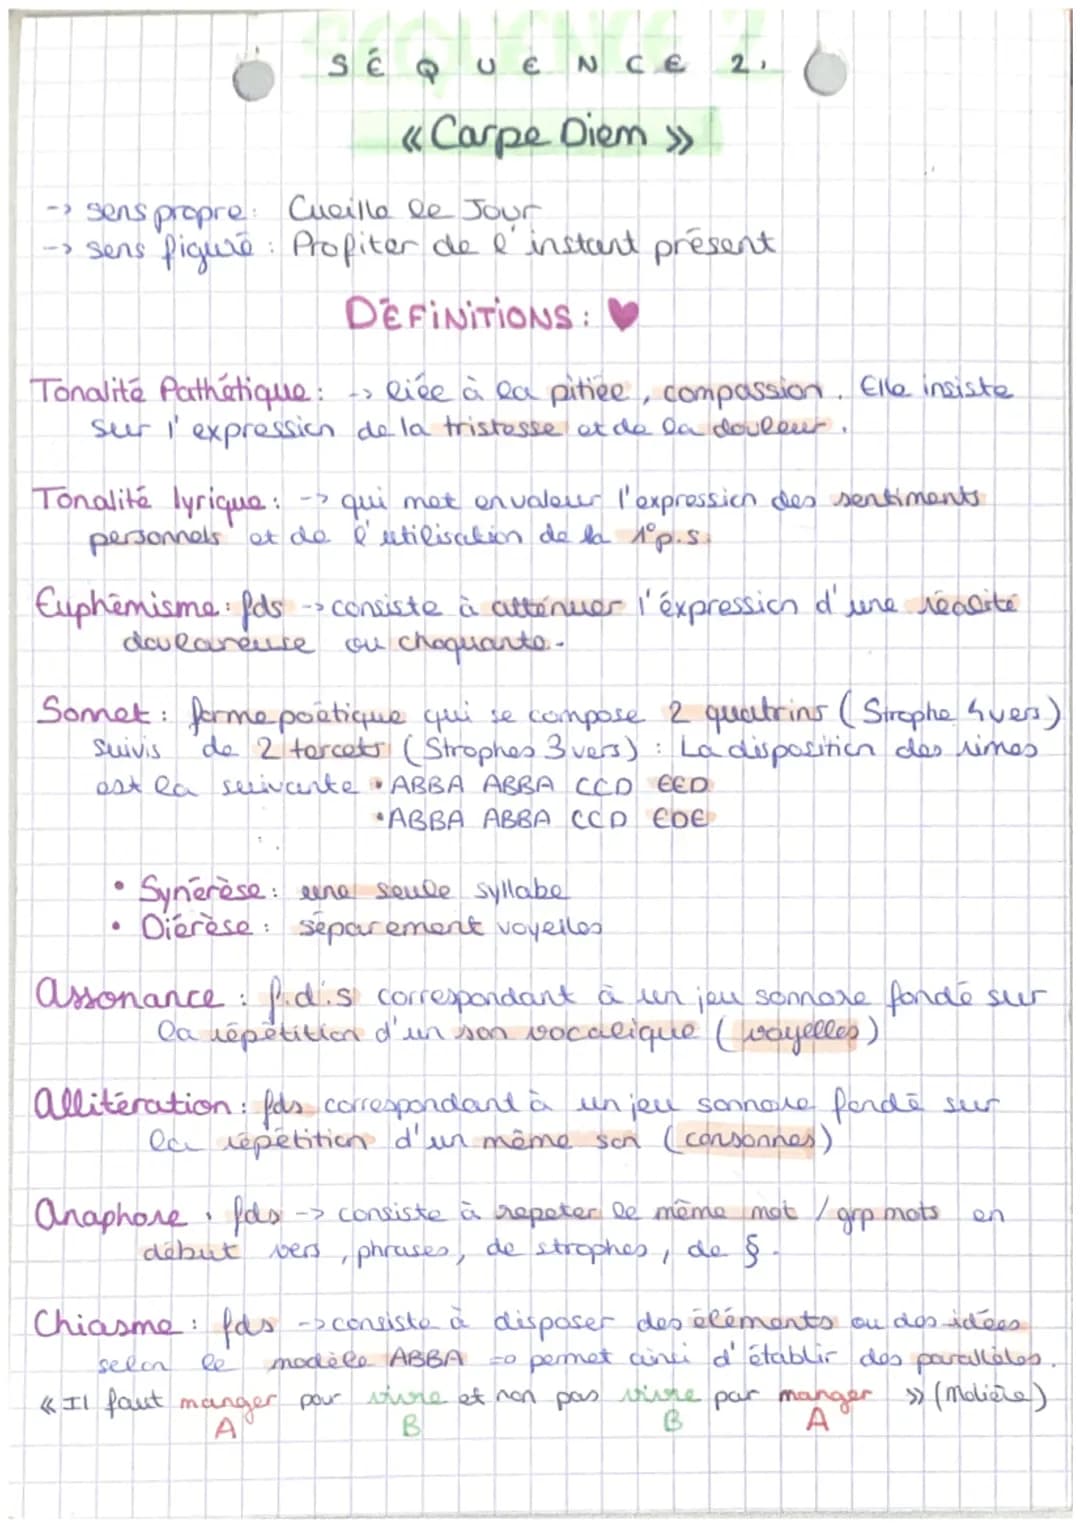 SÉQUENCE 2.
« Carpe Diem »
-> sens propre : Cueille le Jour
-> sens figuré : Profiter de l'instant présent
DÉFINITIONS : ♥
Tonalité Pathétique : -> liée à la pitiée, compassion. Elle insiste
sur l'expression de la tristesse et de la douleur.
Tonalité lyrique : -> qui met en valeur l'expression des sentiments
personnels et de l'utilisation de la 1°p.s.
Euphémisme : fds -> consiste à atténuer l'éxpression d'une réalité
douloureuse ou choquante.
Sonnet : forme poétique qui se compose 2 quatrins (Strophe 4 vers)
suivis de 2 tercets (Strophes 3 vers) : La disposition des rimes
est la suivante • ABBA ABBA CCD EED
• ABBA ABBA CCD EDE
• Synérèse : une seule syllabe
• Diérèse : séparement voyelles
Assonance : f.d.s correspondant à un jeu sonnore fondé sur
la répétition d'un son vocalique (voyelles)
Allitération : fds correspondant à un jeu sonnore fondé sur
la répétition d'un même son (consonnes)
Anaphore : fds -> consiste à repeter le même mot / grp mots en
début vers, phrases, de strophes, de §.
Chiasme : fds -> consiste à disposer des éléments ou des idées
selon le modèle ABBA => permet ainsi d'établir des parallèles.
« Il faut manger pour vivre et non pas vivre par manger » (Molière)
A B B A